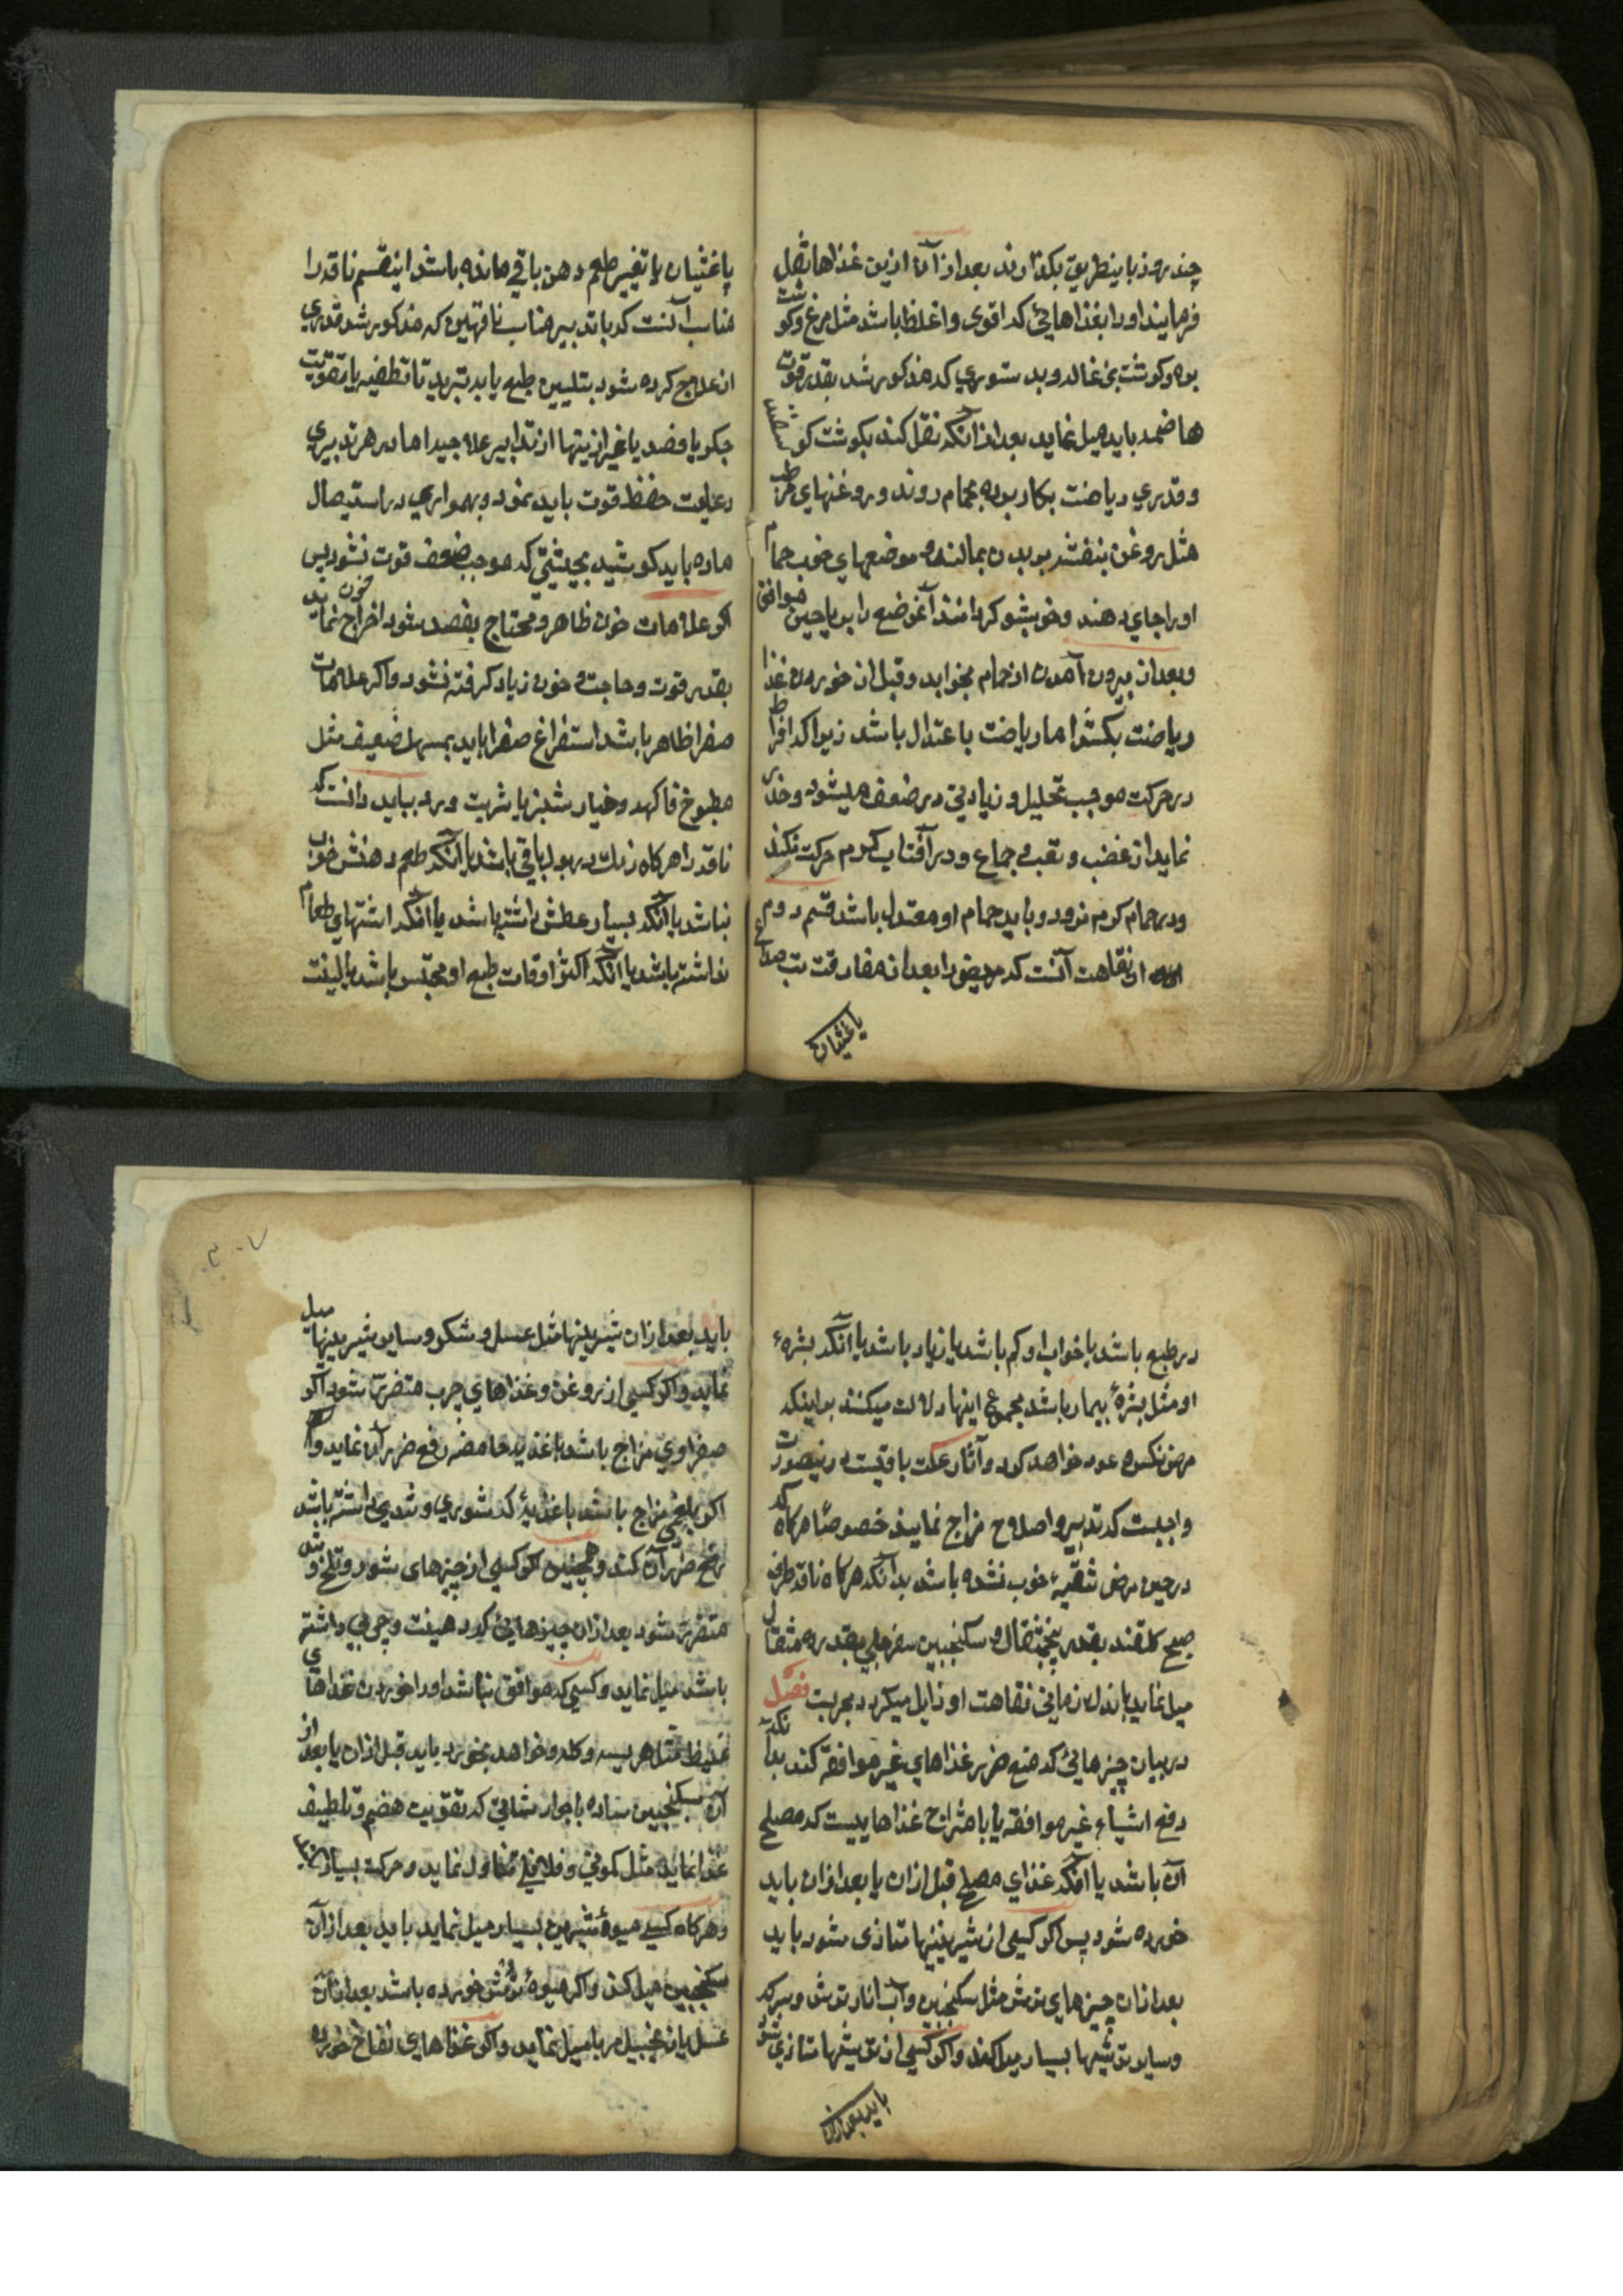 چند روز باینطریق بکذارند بعد از آن ازین غذاها نقل
فرمایند او را بغذاهایی که اقوی و اغلظ باشد مثل مرغ و کوشت
بره و کوشت بزغاله و بدستوری که مذکور شد بقدر قوت
هاضمه باید میل نماید بعد از آنکه نقل کند بکوشت کوسفند
و قدری ریاضت بکار برده بحمام روند و روغنهای مرطب
مثل روغن بنفشه بر بدن بمالند و موضعهای خوب حمام
او را جای دهند و خوشبو کردانند آنموضع را بریاحین موافق
و بعد از بیرون آمدن از حمام بخوابد و قبل از خوردن غذا
ریاضت بکشد اما ریاضت باعتدال باشد زیرا که افراط
در حرکت موجب تحلیل و زیادتی در ضعف میشود و حذر
نماید از غضب و تعب و جماع و در آفتاب کرم حرکت نکند
و در حمام کرم نرود و باید حمام او معتدل باشد قسم دوم
از نقاهت آنست که مریض را بعد از مفارقت تب صداع
یا غثیان
یا غثیان یا تغییر طعم دهن باقی مانده باشد اینقسم ناقه را
مناسب آنست که با تدبیر مناسب ناقهین که مذکور شد قدری
از علاج کرده شود بتلیین طبع یا بد تبرید تا تطفیه یا تقویت
جکر یا فصد یا غیر ازینها از تدابیر علاجیه اما در هر تدبیری
رعایت حفظ قوت باید نمود و بهمواری در استیصال
ماده باید کوشید بحیثیتی که موجب ضعف قوت نشود پس
اکر علامات خون ظاهر و محتاج بفصد شود اخراج خون نماید
بقدر قوت و حاجت و خون زیاد کرفته نشود و اکر علامات
صفرا ظاهر باشد استفراغ صفرا باید بمسهل ضعیف مثل
مطبوخ فاکهه و خیارشنبر یا شربت ورد بباید دانست که
ناقه را هرکاه رنك در بول باقی باشد یا آنکه طعم دهنش خوب
نباشد یا آنکه بسیار عطش داشته باشد یا آنکه اشتهای طعام
نداشته باشد یا آنکه اکثر اوقات طبع او محتبس باشد یا لینت
در طبع باشد یا خواب او کم باشد یا زیاد باشد یا آنکه بشرهٔ
او مثل بشرهٔ بیمار باشد مجموع اینها دلالت میکنند بر اینکه
مرض نکس و عود خواهد کرد و آثار علت باقیست درینصورت
واجبست که تدبیر و اصلاح مزاج نمایند خصوصاً هرکاه که
در حین مرض تنقیهٔ خوب نشده باشد بدانکه هرکاه ناقه طرف
صبح کلقند بقدر پنجمثقال و سکنجبین سفرجلی بقدر ده مثقال
میل نماید باندك زمانی نقاهت او زایل میکردد مجربست فصل
در بیان چیزهایی که منع ضرر غذاهای غیر موافقه کند بدانکه
دفع اشیاء غیر موافقه یا بامتزاج غذاهاییست که مصلح
آن باشد یا آنکه غذای مصلح قبل ازان یا بعد ازان باید
خورده شود پس اکر کسی از شیرینیها متاذی شود باید
بعد ازان چیزهای ترش مثل سکنجبین و آب انار ترش و سرکه
و سایر ترشیها بسیار میل کند و اکر کسی از ترشیها متاذی شود
باید بعد ازان
باید بعد ازان شیرینیها مثل عسل و شکر و سایر شیرینیها میل
نماید و اکر کسی از روغن و غذاهای چرب متضرر شود اکر
صفراوی مزاج باشد باغذیه حامضه رفع ضرر آن نماید و
اکر بلغمی مزاج باشد باغذیهٔ که شوری و تندی داشته باشد
رفع ضرر آن کند و همچنین اکر کسی از چیزهای شور و تلخ و تند
متضرر شود بعد ازان چیزهایی که دهنیت و چربی داشته
باشد میل نماید و کسی که موافق نباشد او را خوردن غذاهای
غلیظ مثل هریسه و کله و خواهد بخورد باید قبل ازان یا بعد از
آن سکنجبین ساده با جوارشاتی که تقویت هضم و تلطیف
غذا نماید مثل کمونی و فلافلی تناول نماید و حرکت بسیار کند
و هرکاه کسی میوهٔ شیرین بسیار میل نماید باید بعد از آن
سکنجبین میل کند و اکر میوهٔ ترش خورده باشد بعد ازان
عسل یا زنجبیل مربا میل نماید و اکر غذاهای نفاخ خورده